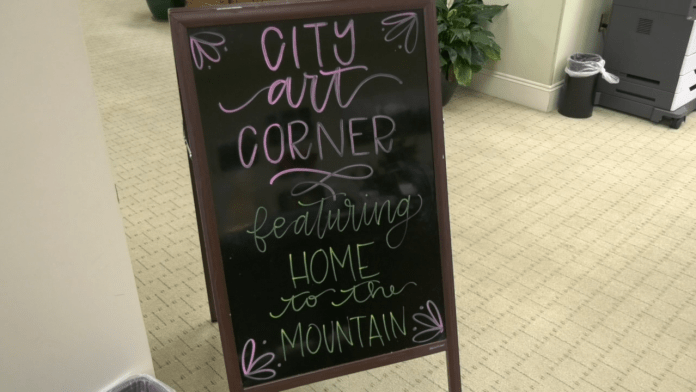 CITY
art
CORNER
featuring
HOME
to the
MOUNTAIN